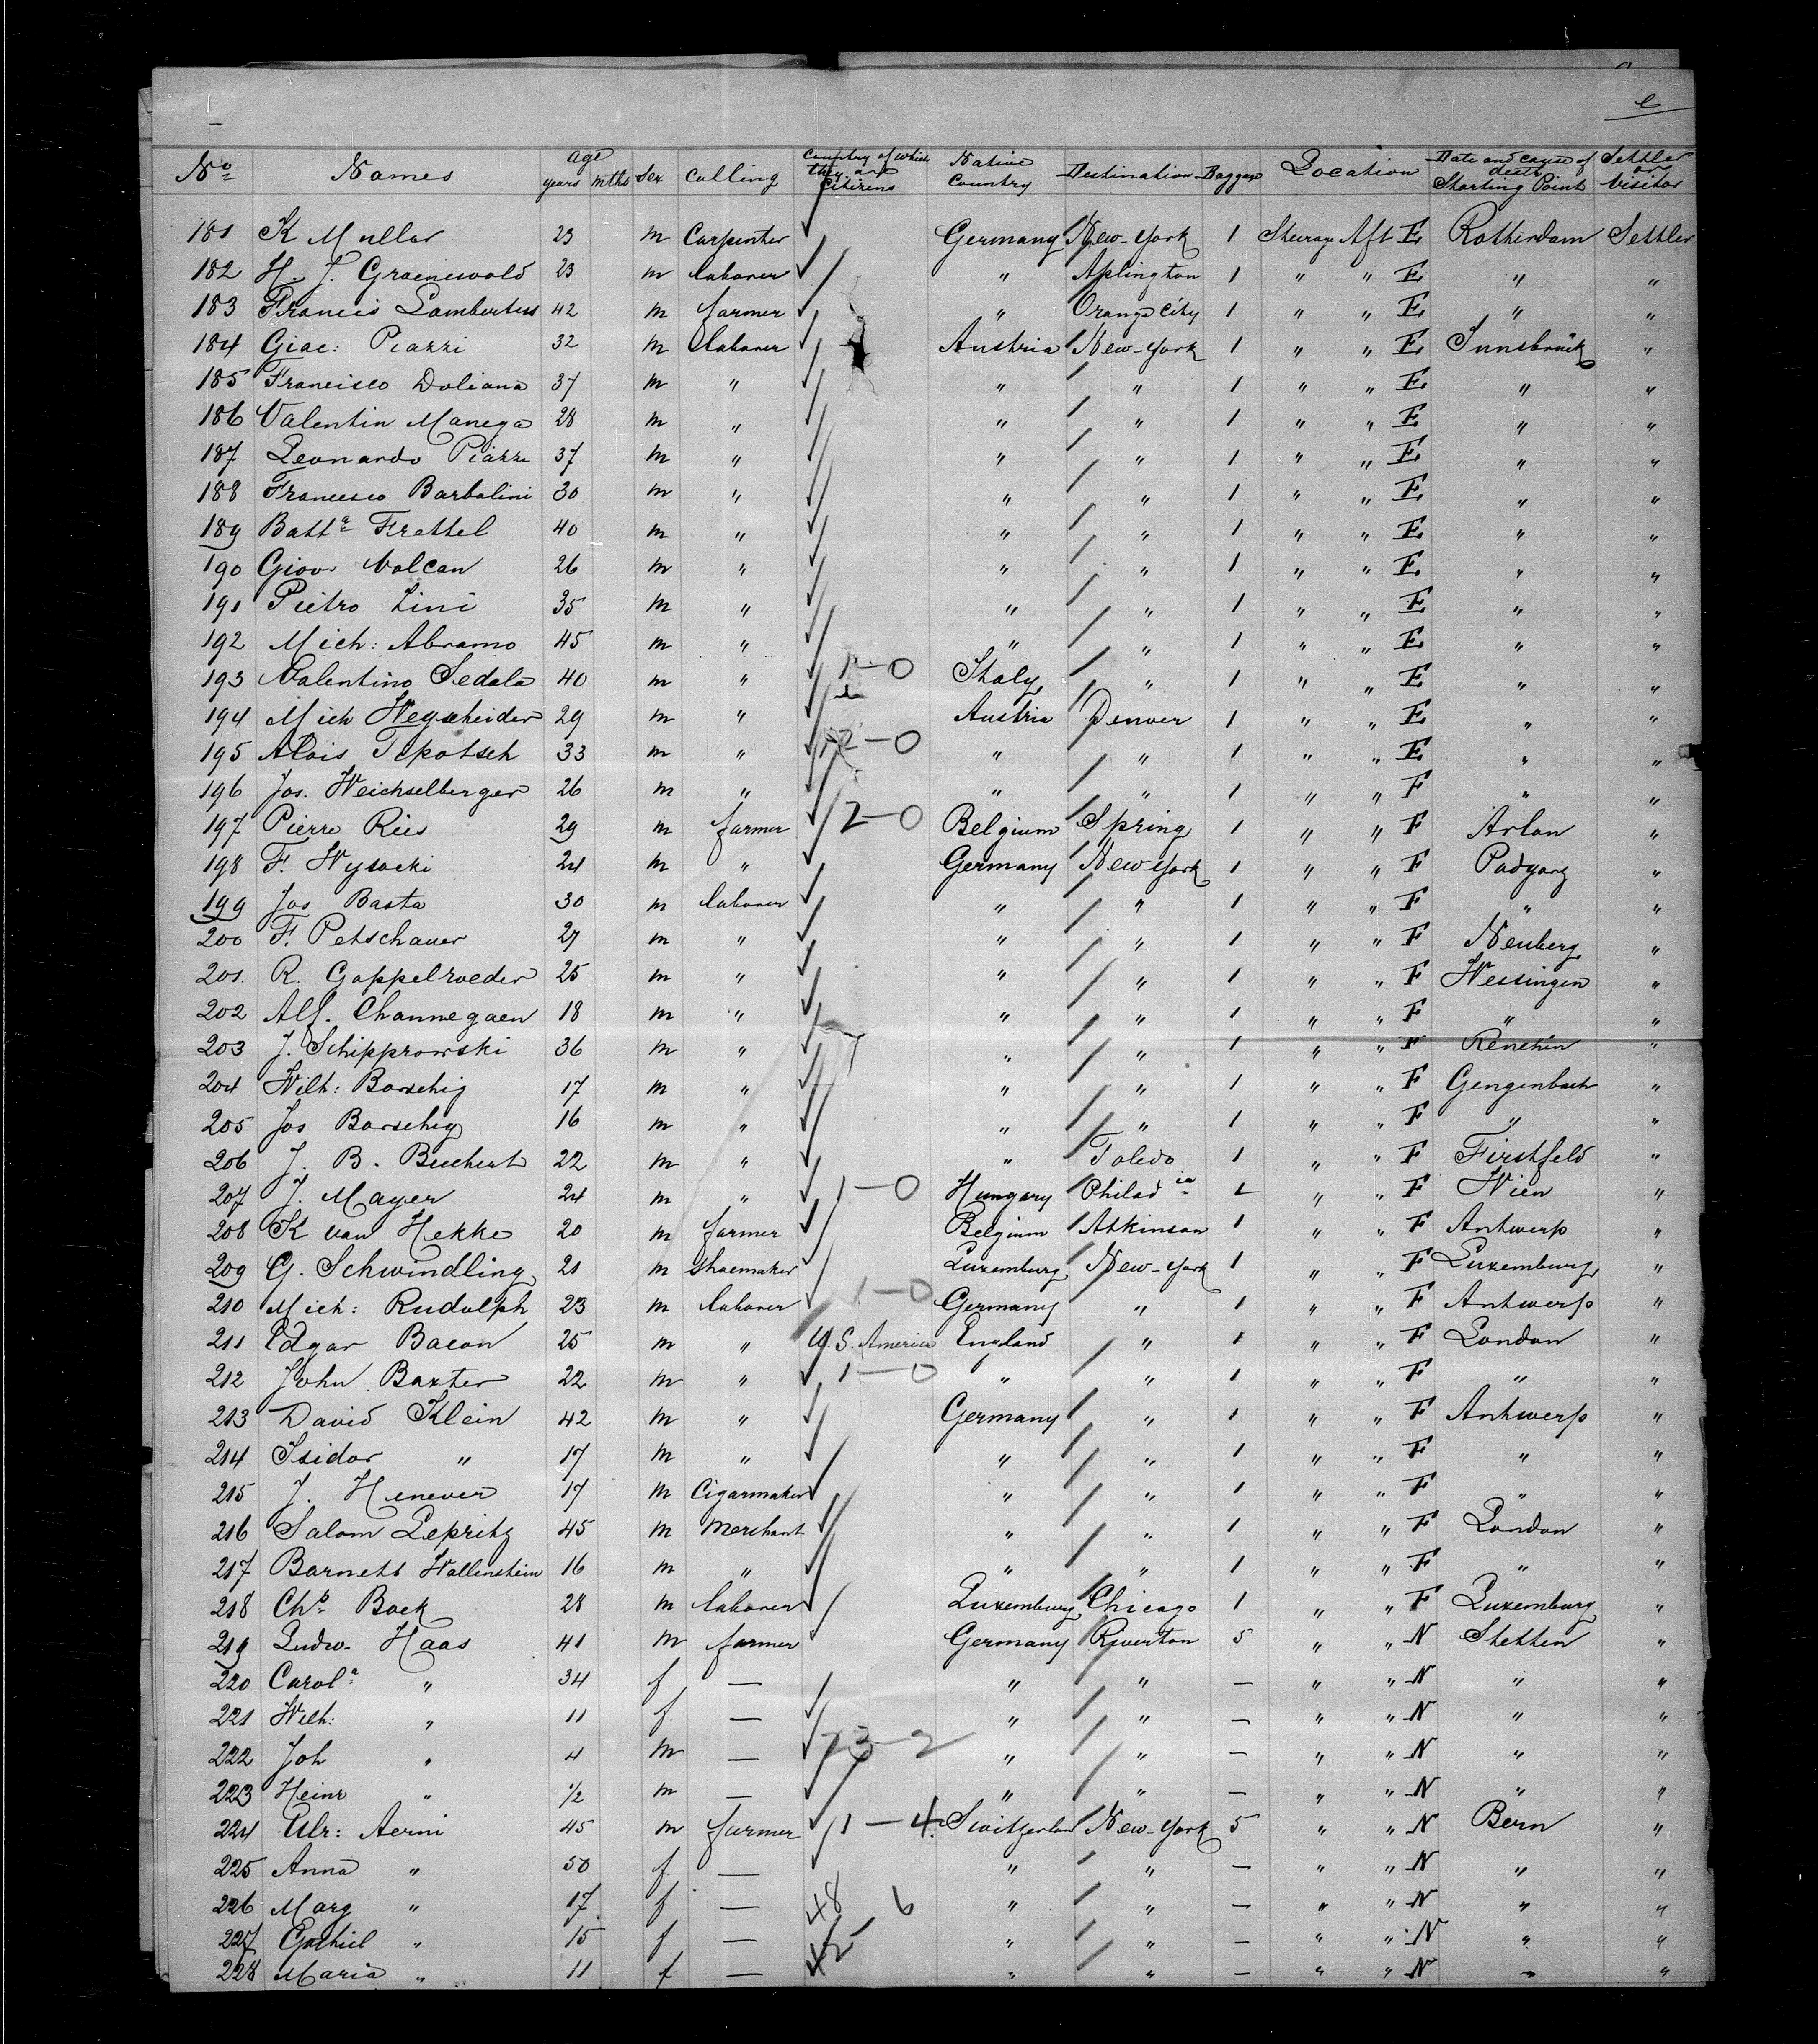 e
No Names Age years mths Sex Calling Country of which they are Citizens Native Country Destination Baggage Location Date and cause of death Starting Point Settler or Visitor
181 K Mullar 23 m Carpenter ✓ Germany New-York 1 Steerage Aft E Rotterdam Settler
182 H. J. Groenewold 23 m laborer ✓ " Aplington 1 " " E " "
183 Francis Lambertus 42 m farmer ✓ " Orange City 1 " " E " "
184 Giac: Piazzi 32 m laborer ✓ Austria New-York 1 " " E Innsbruck "
185 Francisco Doliana 37 m " ✓ " " 1 " " E " "
186 Valentin Manega 28 m " ✓ " " 1 " " E " "
187 Leonardo Piazzi 37 m " ✓ " " 1 " " E " "
188 Francesco Barbolini 30 m " ✓ " " 1 " " E " "
189 Batta Frettel 40 m " ✓ " " 1 " " E " "
190 Giov Volcan 26 m " ✓ " " 1 " " E " "
191 Pietro Zini 35 m " ✓ " " 1 " " E " "
192 Mich: Abramo 45 m " ✓ " " 1 " " E " "
193 Valentino Sedola 40 m " ✓ 1-0 Italy " 1 " " E " "
194 Mich Wegscheider 29 m " ✓ Austria Denver 1 " " E " "
195 Alois Tepotsch 33 m " ✓ 12-0 " " 1 " " E " "
196 Jos. Weichselberger 26 m " ✓ " " 1 " " F " "
197 Pierre Ries 29 m farmer ✓ 2-0 Belgium Spring 1 " " F Arlon "
198 F. Wysocki 24 m " ✓ Germany New York 1 " " F Podgorz "
199 Jos Basta 30 m laborer ✓ " " 1 " " F " "
200 F. Petschauer 27 m " ✓ " " 1 " " F Neuberg "
201. R. Goppelroeder 25 m " ✓ " " 1 " " F Wessingen "
202 Alf. Channegaen 18 m " ✓ " " 1 " " F " "
203 J. Schipprowski 36 m " ✓ " " 1 " " F Renchin "
204 Wilh: Borschig 17 m " ✓ " " 1 " " F Gengenbach "
205 Jos Borschig 16 m " ✓ " " 1 " " F " "
206 J. B. Buchert 22 m " ✓ " Toledo 1 " " F Firstfeld "
207 J. Mayer 24 m " ✓ 1-0 Hungary Philadia " " F Wien "
208 K van Hekke 20 m farmer ✓ Belgium Atkinson 1 " " F Antwerp "
209 G. Schwindling 21 m Shoemaker ✓ Luxemburg New-York 1 " " F Luxemburg "
210 Mich: Rudolph 23 m laborer ✓ 1-0 Germany " 1 " " F Antwerp "
211 Edgar Bacon 25 m " U.S. America England " 1 " " F London "
212 John Baxter 22 m " ✓ 1-0 " " 1 " " F " "
213 David Klein 42 m " ✓ Germany " 1 " " F Antwerp "
214 Isidor " 17 m " ✓ " " 1 " " F " "
215 J. Henever 17 m Cigarmaker ✓ " " 1 " " F " "
216 Salom Lepritz 45 m Merchant ✓ " " 1 " " F London "
217 Barnett Wallenstein 16 m " ✓ " " 1 " " F " "
218 Chs Bock 28 m laborer ✓ Luxemburg Chicago 1 " " F Luxemburg "
219 Ludw. Haas 41 m farmer ✓ Germany Riverton 5 " " N Stetten "
220 Carola " 34 f — ✓ " " — " " N " "
221 Wilh: " 11 f — ✓ " " — " " N " "
222 Joh " 4 m — ✓ 23-2 " " — " " N " "
223 Heinr " 1/2 m — ✓ " " — " " N " "
224 Ulr: Aerni 45 m farmer ✓ 1-4 Switzerland New-York 5 " " N Bern "
225 Anna " 50 f — ✓ " " — " " N " "
226 Marg " 17 f — 48 6 " " — " " N " "
227 " 15 f — " " — " " N " "
228 Maria " 11 f — " " — " " N " "